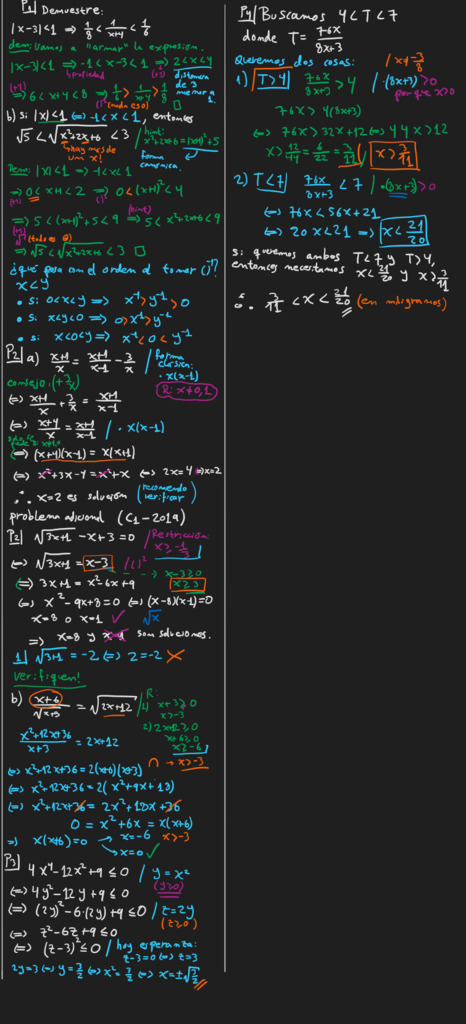 P1] Demuestre:
|x-3|<1 ⇒ 1/8 < 1/(x+4) < 1/6
dem: Vamos a "armar" la expresión.
|x-3|<1 ⇒ -1<x-3<1 ⇒ 2<x<4
propiedad
(+3)
distancia de 3 menor a 1.
(+4) ⇒ 6<x+4<8 ⇒ 1/6 > 1/(x+4) > 1/8 □
b) si |x|<1 (⇔ -1<x<1), entonces
√5 < √(x²+2x+6) < 3
hint: x²+2x+6=(x+1)²+5
¡hay más de un x!
forma canónica.
Dem: |x|<1 ⇒ -1<x<1
⇒ 0<x+1<2 ⇒ 0<(x+1)²<4
(+1) ()²
⇒ 5<(x+1)²+5<9 ⇒ 5<x²+2x+6<9
(+5) (hint)
√ (todo es ⊕)
⇒ √5<√(x²+2x+6) < 3 □
¿qué pasa con el orden al tomar ()⁻¹?
x<y
• si: 0<x<y ⇒ x⁻¹>y⁻¹>0
• si: x<y<0 ⇒ 0>x⁻¹>y⁻¹
• si: x<0<y ⇒ x⁻¹<0<y⁻¹
P2] a) (x+1)/x = (x+1)/(x-1) - 3/x
forma clásica: • x(x-1)
consejo: (+3/x)
R: x≠0,1
⇔ (x+1)/x + 3/x = (x+1)/(x-1)
⇔ (x+4)/x = (x+1)/(x-1) / • x(x-1)
⇔ (x+4)(x-1) = x(x+1)
⇔ x²+3x-4=x²+x ⇔ 2x=4 ⇔ x=2
∴ x=2 es solución (recomiendo verificar)
problema adicional (C1-2019)
P2] √(3x+1) -x+3=0 / Restricción: x≥-1/3
⇔ √(3x+1) = x-3 / ()²
→ x-3≥0
x≥3
⇒ 3x+1= x²-6x+9
⇔ x²-9x+8=0 ⇔ (x-8)(x-1)=0
x=8 o x=1 ✓ √x
⇒ x=8 y x=1 son soluciones.
1] √(3+1) = -2 ⇔ 2=-2 ×
Verifiquen!
b) (x+6)/√(x+3) = √(2x+12)
R:
1) x+3≥0
x>-3
2) 2x+12≥0
x+6≥0
x≥-6
(x²+12x+36)/(x+3) = 2x+12
∩ → x>-3
⇔ x²+12x+36=2(x+6)(x+3)
⇔ x²+12x+36=2(x²+9x+18)
⇔ x²+12x+36= 2x²+18x+36
0 = x²+6x=x(x+6)
⇒ x(x+6)=0 → x=-6 x>-3
→ x=0 ✓
P3] 4x⁴-12x²+9≤0 / y=x²
(y≥0)
⇔ 4y²-12y+9≤0
⇔ (2y)²-6·(2y)+9≤0 / z=2y
(z≥0)
⇔ z²-6z+9≤0
⇔ (z-3)²≤0 / hay esperanza: z-3=0 ⇔ z=3
2y=3 ⇔ y=3/2 ⇔ x²=3/2 ⇔ x=±√(3/2)
P4] Buscamos 4<T<7
donde T= 76x/(8x+3)
Queremos dos cosas: / x≠-3/8
1) T>4] 76x/(8x+3) >4 / •(8x+3)>0
porque x>0
76x>4(8x+3)
⇔ 76x>32x+12 ⇔ 44x>12
x> 12/44 = 6/22 = 3/11 x>3/11
2) T<7] 76x/(8x+3) <7 / •(8x+3)>0
⇔ 76x<56x+21
⇔ 20x<21 ⇒ x<21/20
si queremos ambos T<7 y T>4,
entonces necesitamos x<21/20 y x>3/11
∴ 3/11 <x< 21/20 (en miligramos)